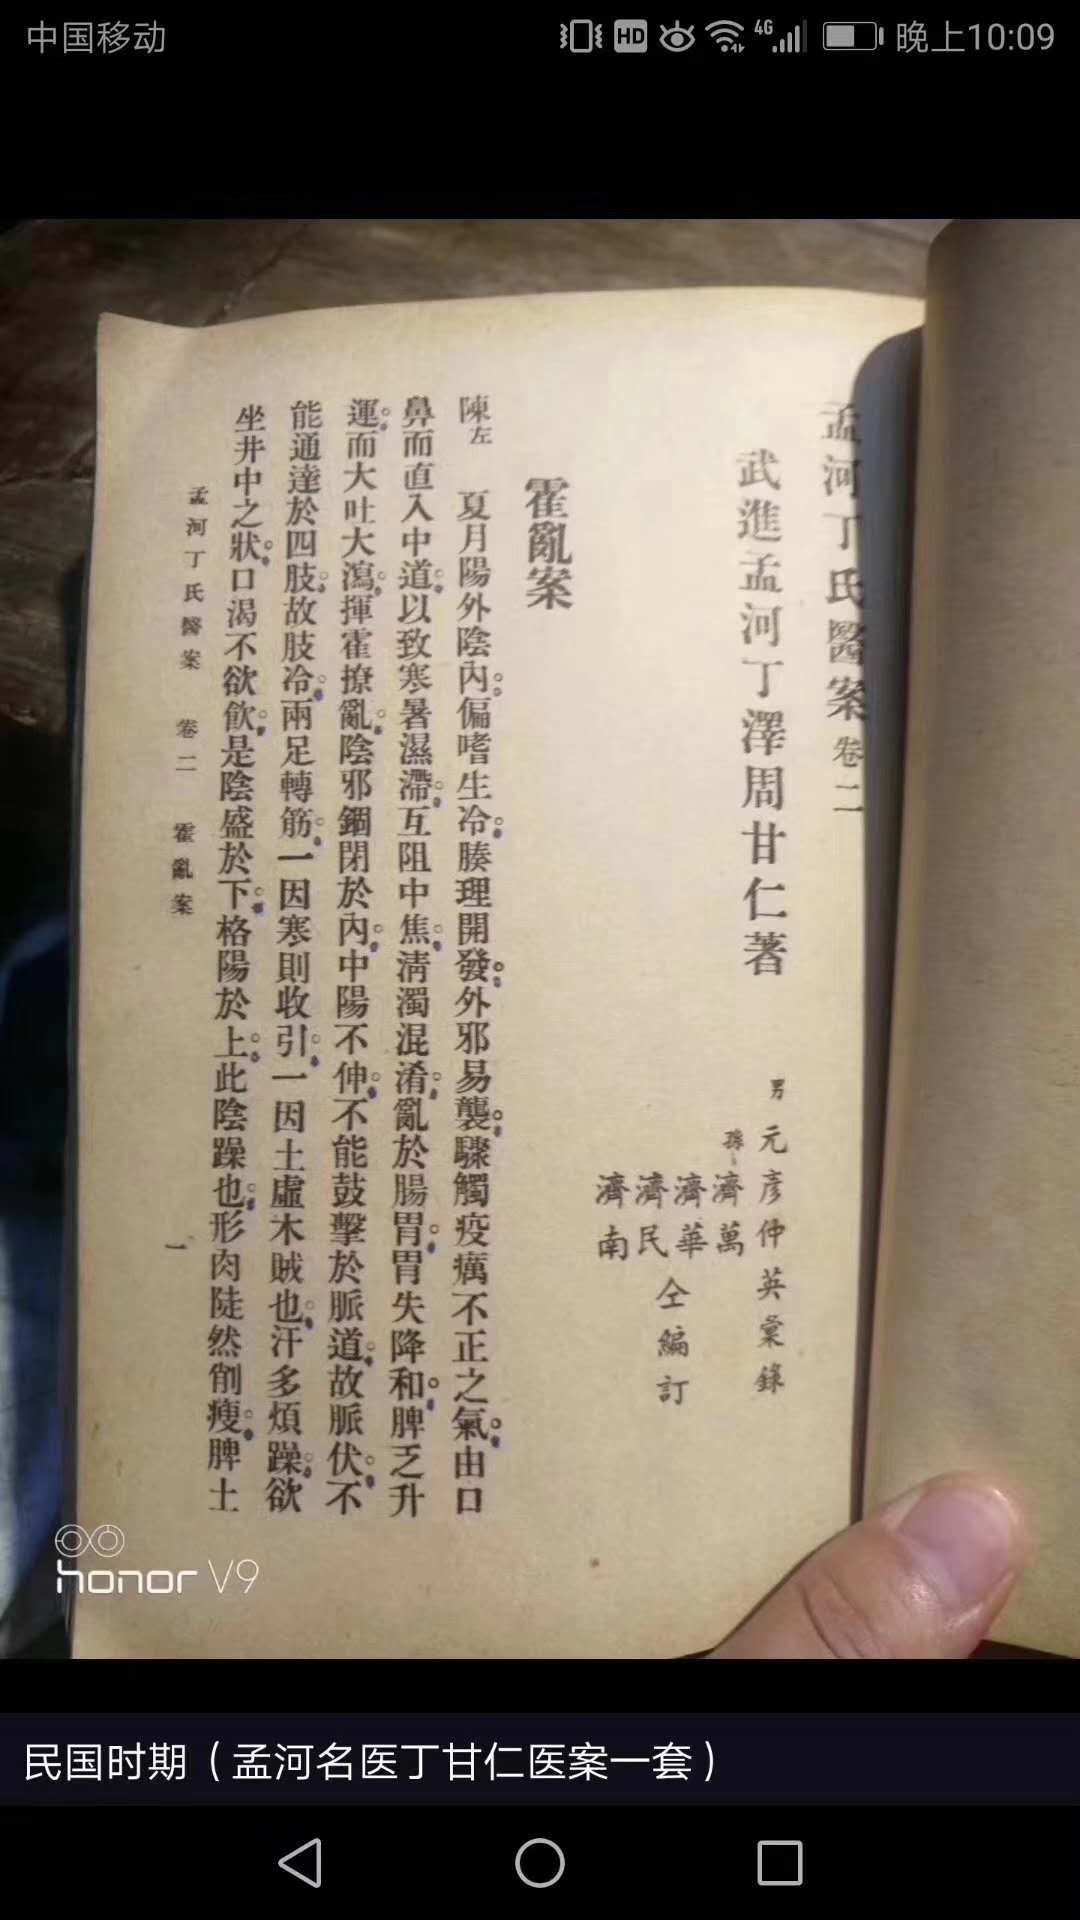 中国移动 HD 4G 晚上10:09
孟河丁氏醫案卷二
武進孟河丁澤周甘仁著
男 元彥仲英彙錄
孫 濟萬
濟華
濟民
濟南
仝編訂
霍亂案
陳左 夏月陽外陰內。偏嗜生冷。腠理開發。外邪易襲。驟觸疫癘不正之氣。由口
鼻而直入中道。以致寒暑濕滯。互阻中焦。清濁混淆。亂於腸胃。胃失降和。脾乏升
運。而大吐大瀉。揮霍撩亂。陰邪錮閉於內。中陽不伸。不能鼓擊於脈道。故脈伏。不
能通達於四肢。故肢冷。兩足轉筋。一因寒則收引。一因土虛木賊也。汗多煩躁。欲
坐井中之狀。口渴不欲飲。是陰盛於下。格陽於上。此陰躁也。形肉陡然削瘦。脾土
孟河丁氏醫案 卷二 霍亂案 一
honor V9
民国时期（孟河名医丁甘仁医案一套）